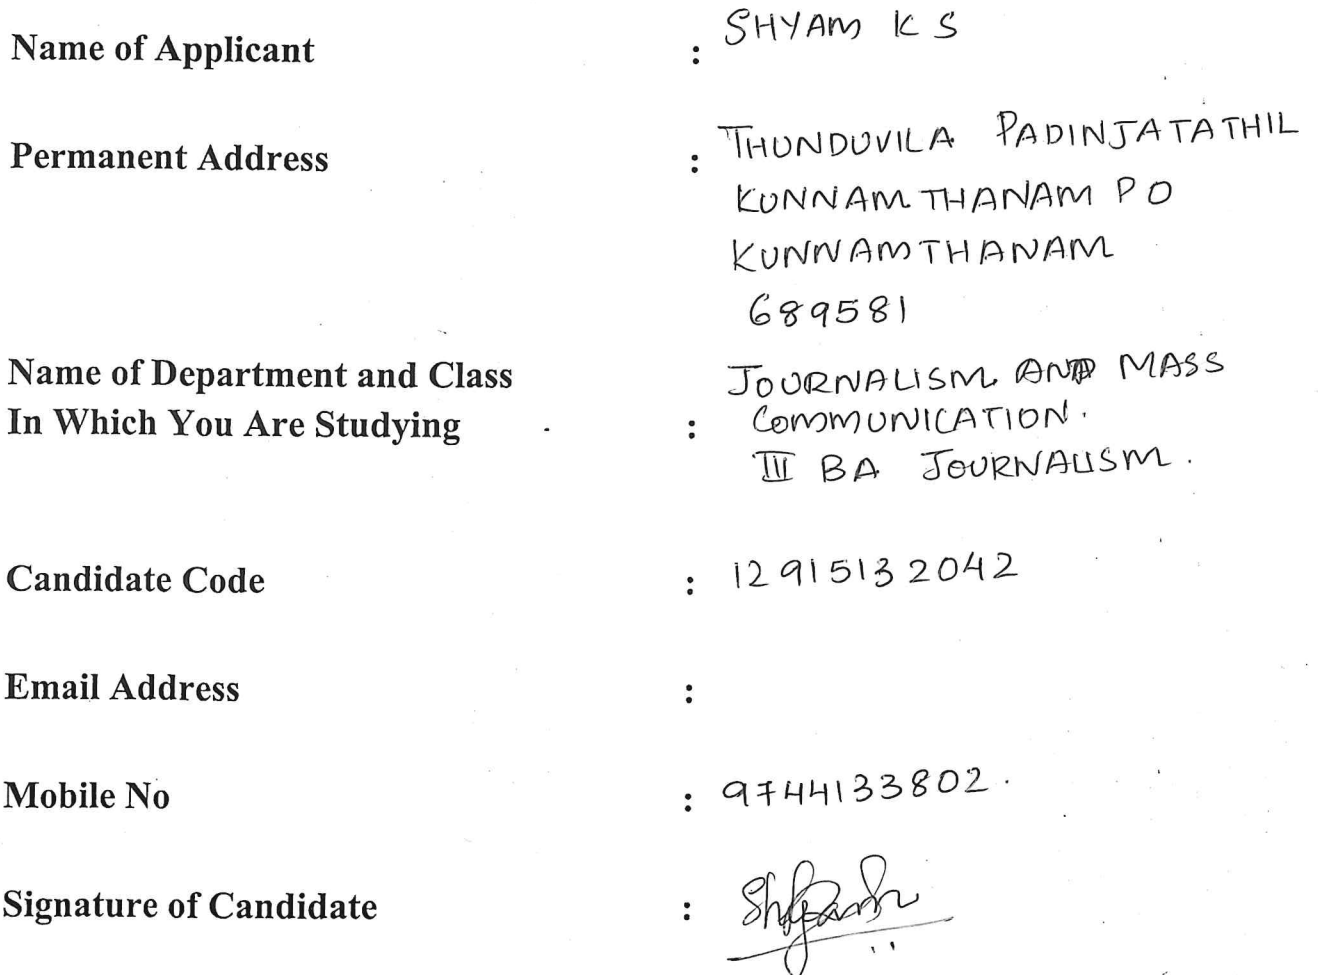 Name of Applicant : SHYAM K S
Permanent Address : THUNDUVILA PADINJATATHIL
KUNNAMTHANAM P O
KUNNAMTHANAM
689581
Name of Department and Class JOURNALISM AND MASS
In Which You Are Studying : COMMUNICATION.
III BA JOURNALISM.
Candidate Code : 12915132042
Email Address :
Mobile No : 9744133802.
Signature of Candidate :